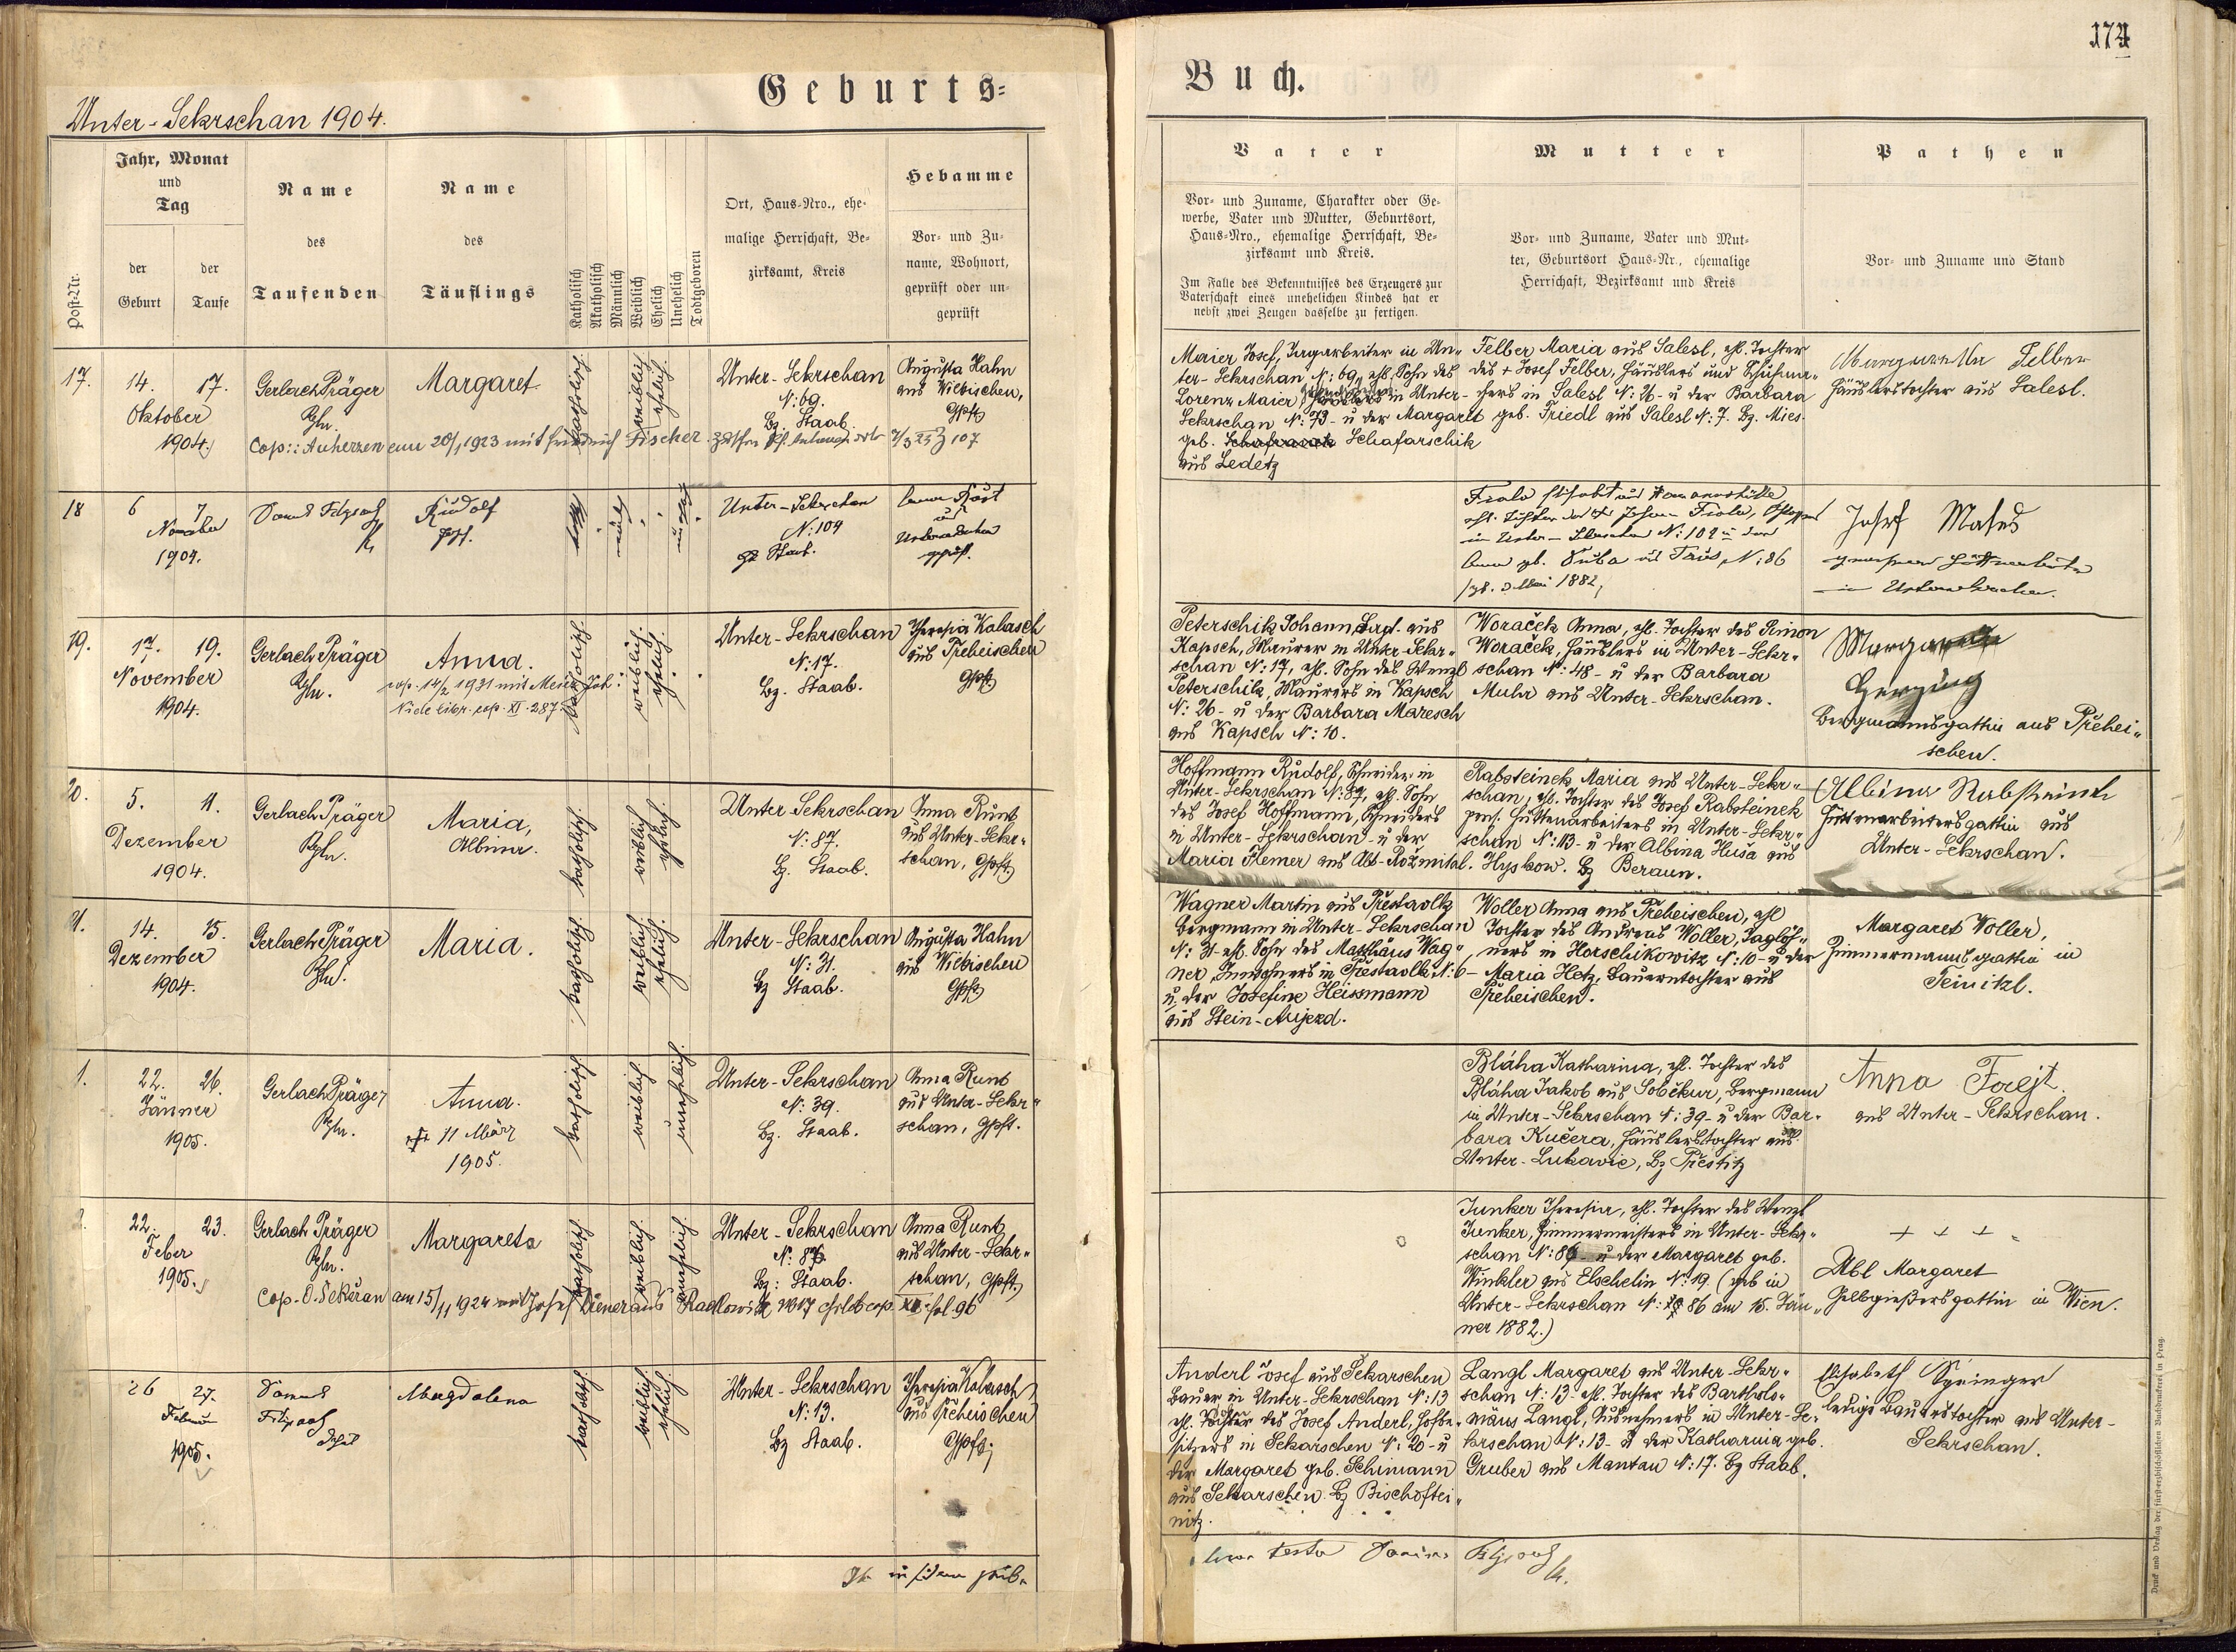 Geburts-
Unter-Sekrschan 1904.
Jahr, Monat
und
Tag
der
Geburt
der
Taufe
Post-Nr.
Name
des
Taufenden
Name
des
Täuflings
Katholisch
Akatholisch
Männlich
Weiblich
Ehelich
Unehelich
Todtgeboren
Ort, Haus-Nro., ehe-
malige Herrschaft, Be-
zirksamt, Kreis
Hebamme
Vor- und Zu-
name, Wohnort,
geprüft oder un-
geprüft
17.
14. 17.
Oktober
1904.
Gerlach Präger
Margaret
katholisch
weiblich
ehelich.
Unter-Sekrschan
N: 69.
Bz. Staab.
Augusta Hahn
aus Wilkischen,
Gpft
Cop.: Auherzen am 20/1 1923 mit Friedrich Fischer
18
6 7
November
1904.
Rudolf
Unter-Sekrschan
N: 109
Bz Staab.
19.
17. 19.
November
1904.
Gerlach Präger
Anna.
cop. 14/2 1931 mit
Vide libr. cop. XI. 287
katholisch.
weiblich.
ehelich.
Unter-Sekrschan
N: 17.
Bz. Staab.
Theresia Kalasch
aus Preheischen
Gpft
20.
5. 11.
Dezember
1904.
Gerlach Präger
Maria,
Albina.
katholisch.
weiblich
ehelich.
Unter Sekrschan
N: 87.
Bz. Staab.
Anna Runt
aus Unter-Sekr-
schan, Gpft
21.
14. 15.
Dezember
1904.
Gerlach Präger
Maria.
katholisch.
weiblich.
ehelich.
Unter-Sekrschan
N: 31.
Bz Staab.
Augusta Hahn
aus Wilkischen
Gpft
1.
22. 26.
Jänner
1905.
Gerlach Präger
Anna.
11 März
1905.
katholisch.
weiblich
unehelich.
Unter-Sekrschan
N: 39.
Bz. Staab.
Anna Runt
aus Unter-Sekr-
schan, Gpft.
2.
22. 23.
Feber
1905.
Gerlach Präger
Margareta
katholisch.
weiblich.
unehelich
Unter-Sekrschan
Bz: Staab.
Anna Runt
aus Unter-Sekr-
schan, Gpft.
am 15/11 1924 mit Josef
26 27.
Februar
1905.
Magdalena
katholisch.
weiblich.
ehelich
Unter-Sekrschan
N: 13.
Bz Staab.
Theresia Kalasch
aus Preheischen
Gpft;
Buch.
174
Vater
Vor- und Zuname, Charakter oder Ge-
werbe, Vater und Mutter, Geburtsort,
Haus-Nro., ehemalige Herrschaft, Be-
zirksamt und Kreis.
Im Falle des Bekenntnisses des Erzeugers zur
Vaterschaft eines unehelichen Kindes hat er
nebst zwei Zeugen dasselbe zu fertigen.
Mutter
Vor- und Zuname, Vater und Mut-
ter, Geburtsort Haus-Nr., ehemalige
Herrschaft, Bezirksamt und Kreis
Pathen
Vor- und Zuname und Stand
Maier Josef, in Un-
ter-Sekrschan N: 69, ehl. Sohn des
Lorenz Maier, in Unter-
Sekrschan N: 73 - u der Margaret
geb. Schafarschik
aus Ledetz
Felber Maria aus Salesl, ehl. Tochter
des + Josef Felber, Häuslers und Schuhma-
chers in Salesl N: 26 - u der Barbara
geb. Friedl aus Salesl N: 7. Bz. Mies.
Margaretha Felber
Häuslerstochter aus Salesl.
Anna geb. Duba N: 86
Mai 1882,
Peterschik Johann, aus
Kapsch, Maurer in Unter-Sekr-
schan N: 17, ehl. Sohn des Wenzl
Peterschik, Maurers in Kapsch
N: 26 - u der Barbara Maresch
aus Kapsch N: 10.
Woraček Anna, ehl. Tochter des Simon
Woraček, Häuslers in Unter-Sekr-
schan N: 48 - u der Barbara
Muhr aus Unter-Sekrschan.
Bergmannsgattin aus Přehei-
schen.
Hoffmann Rudolf, Schneider in
Unter-Sekrschan N: 87, ehl. Sohn
des Josef Hoffmann, Schneiders
in Unter-Sekrschan - u der
Maria Flemer aus Alt-Rožmital.
Rabsteinek Maria aus Unter-Sekr-
schan, ehl. Tochter des Josef Rabsteinek
pens. Hüttenarbeiters in Unter-Sekr-
schan N: 113 - u der Albina Huša aus
Hyskow. Bz Beraun.
Albina Rabsteinek
Hüttenarbeitersgattin aus
Unter-Sekrschan.
Wagner Martin aus Přestavlk
Bergmann in Unter-Sekrschan
N: 31 - ehl. Sohn des Mathäus Wag-
ner, Inwohners in Přestavlk N: 6 -
u. der Josefine Heissmann
aus Stein-Aujezd.
Woller Anna aus Preheischen, ehl
Tochter des Andreas Woller, Taglöh-
ners in Horschikowitz N: 10 - u der
Maria Hotz, Bauerntochter aus
Preheischen.
Margaret Woller,
Zimmermannsgattin in
Teinitzl.
Bláha Katharina, ehl. Tochter des
Bláha Jakob aus Soběkur, Bergmann
in Unter-Sekrschan N: 39 - u der Bar-
bara Kučera, Häuslerstochter aus
Unter-Lukavic, Bz Přestitz
Anna Forejt.
aus Unter-Sekrschan.
Junker Theresia, ehl. Tochter des Wenzl
Junker, Zimmermeisters in Unter-Sekr-
schan N: 86 - u der Margaret geb.
Winkler aus Elschelin N: 19 (geb in
Unter-Sekrschan N: 86 am 15. Jän-
ner 1882.)
+ + +
Abl Margaret
Gelbgießersgattin in Wien.
Anderl Josef aus Sekarschen
Bauer in Unter-Sekrschan N: 13
ehl. Sohn des Josef Anderl, Hofbe-
sitzers in Sekarschen N: 20 - u
der Margaret geb. Schimann
aus Sekarschen. Bz Bischoftei-
nitz.
Langl Margaret aus Unter-Sekr-
schan N: 13 - ehl. Tochter des Bartholo-
mäus Langl, Ausnehmers in Unter-Se-
krschan N: 13 - u der Katharina geb.
Gruber aus Mantau N: 17. Bz Staab.
Elisabeth Springer
ledige Bauerstochter aus Unter-
Sekrschan.
Druck und Verlag der fürsterzbischöflichen Buchdruckerei in Prag.